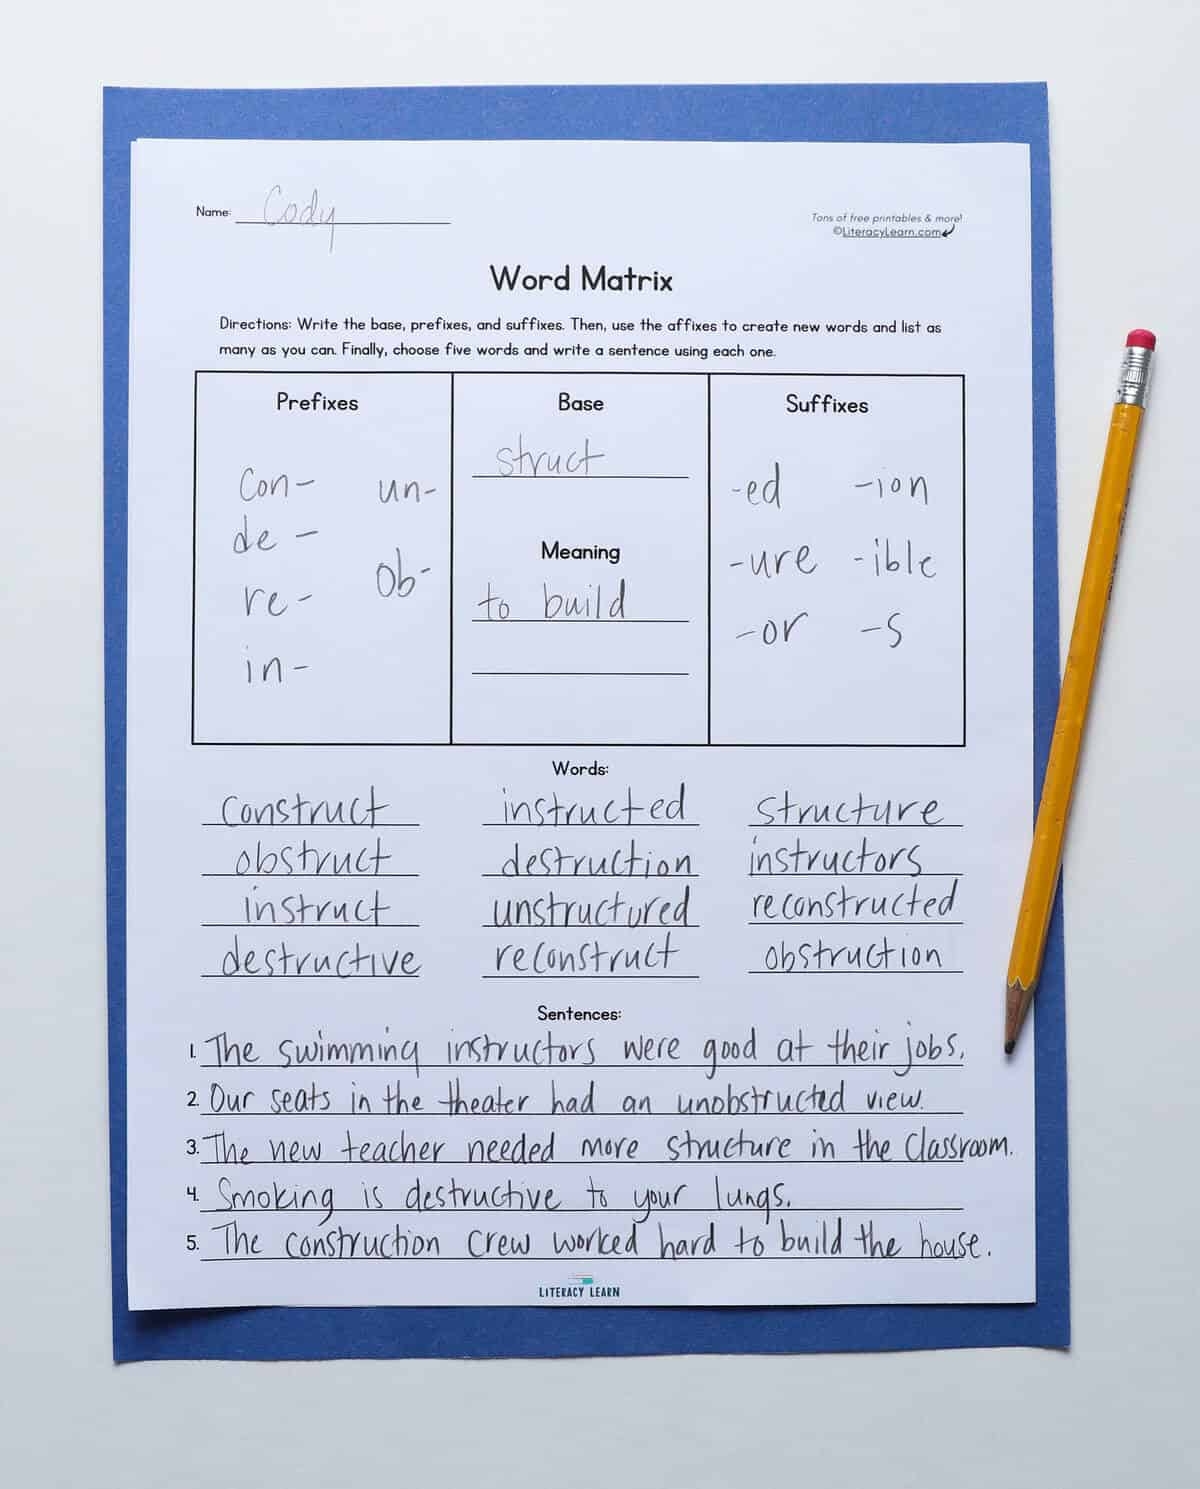 Name: Cody
Tons of free printables & more!
©LiteracyLearn.com
Word Matrix
Directions: Write the base, prefixes, and suffixes. Then, use the affixes to create new words and list as
many as you can. Finally, choose five words and write a sentence using each one.
Prefixes
con- un-
de-
ob-
re-
in-
Base
struct
Meaning
to build
Suffixes
-ed -ion
-ure -ible
-or -s
Words:
construct instructed structure
obstruct destruction instructors
instruct unstructured reconstructed
destructive reconstruct obstruction
Sentences:
1. The swimming instructors were good at their jobs.
2. Our seats in the theater had an unobstructed view.
3. The new teacher needed more structure in the classroom.
4. Smoking is destructive to your lungs.
5. The construction crew worked hard to build the house.
LITERACY LEARN